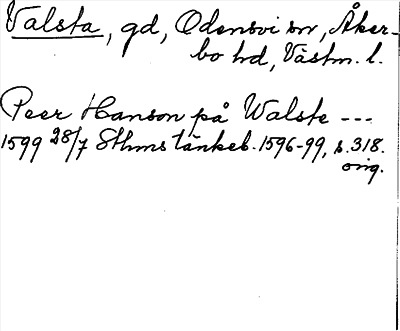 Valsta, gd, Odensvi sn, Åker-
bo hd, Västm. l.
Peer Hanson på Walste ---
1599 28/7 Sthms tänkeb. 1596-99, s. 318.
orig.